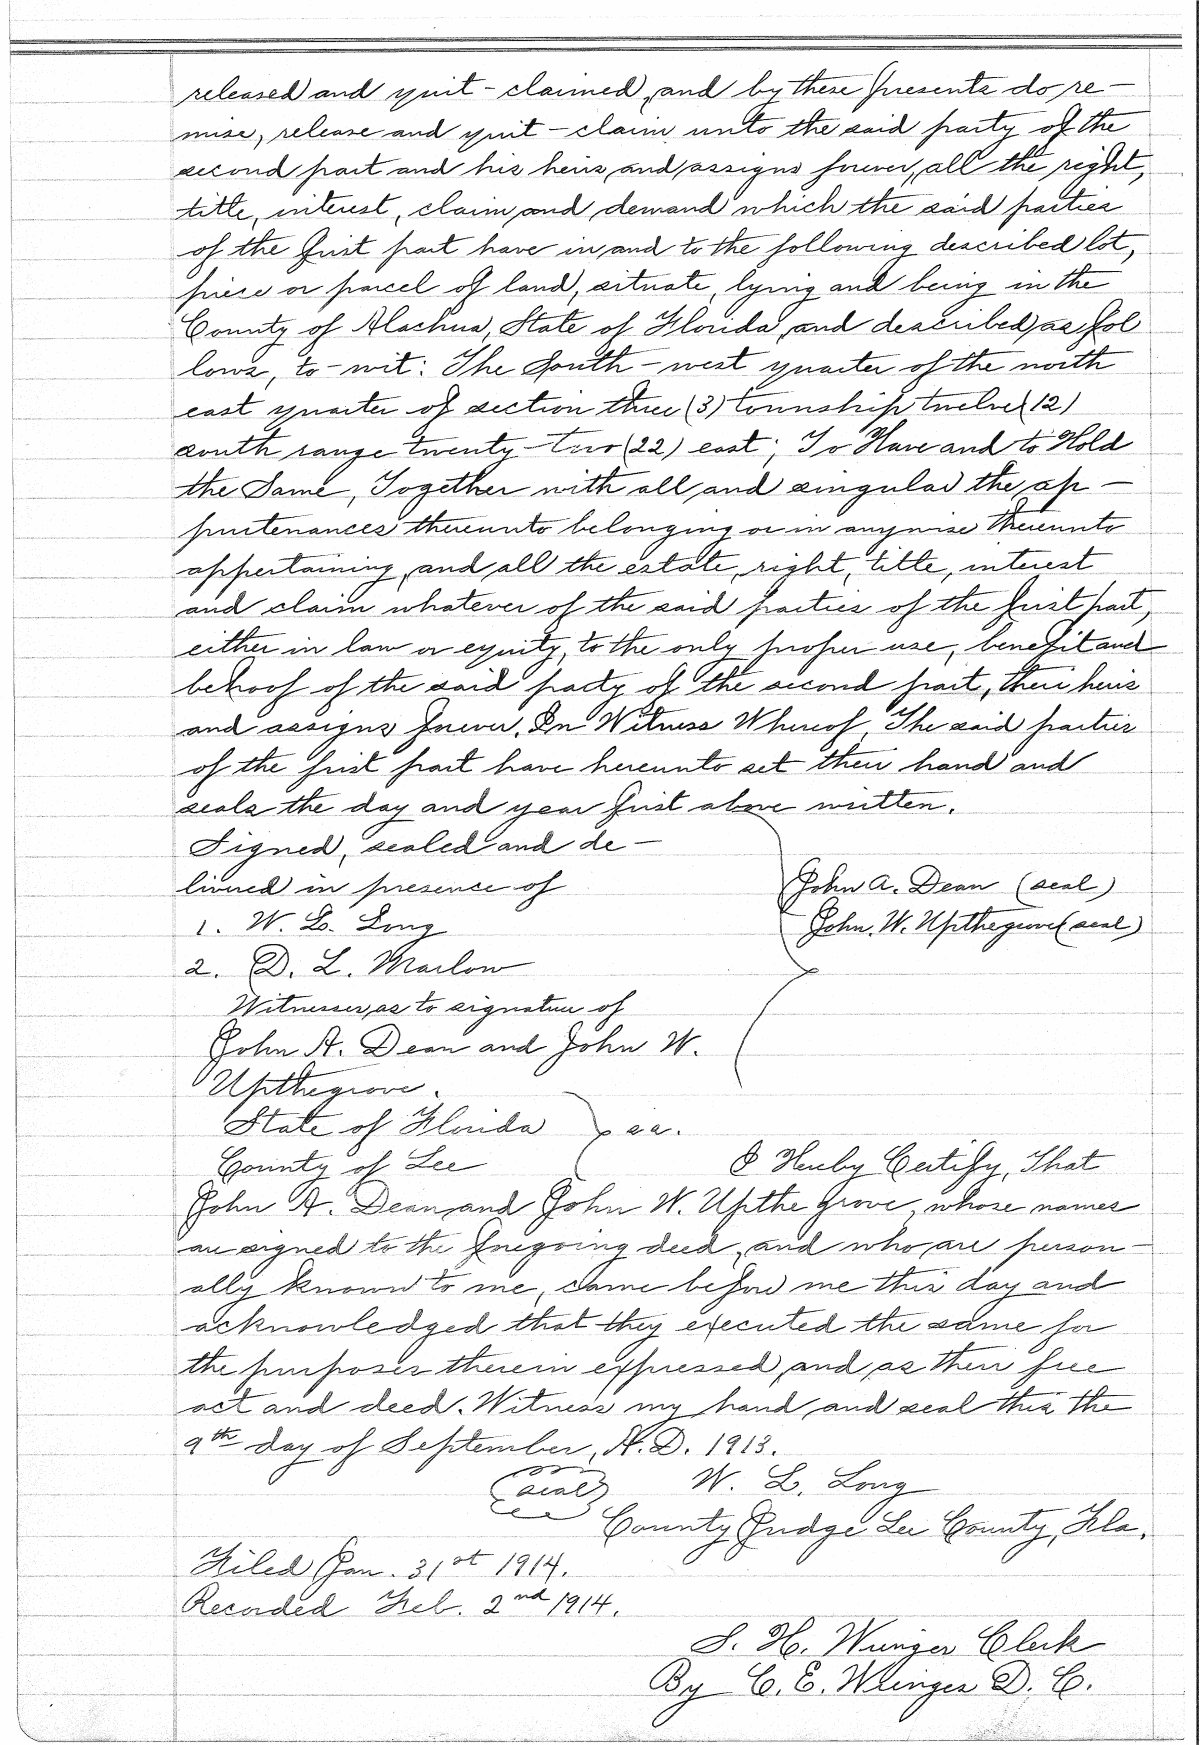 released and quit-claimed, and by these presents do re-
mise, release and quit-claim unto the said party of the
second part and his heirs and assigns forever, all the right,
title, interest, claim and demand which the said parties
of the first part have in and to the following described lot,
piece or parcel of land, situate, lying and being in the
County of Alachua, State of Florida, and described as fol
lows, to-wit: The South-west quarter of the north
east quarter of section three (3) township twelve (12)
south range twenty-two (22) east; To Have and to Hold
the Same, Together with all and singular the ap-
purtenances thereunto belonging or in anywise thereunto
appertaining, and all the estate, right, title, interest
and claim whatever of the said parties of the first part,
either in law or equity, to the only proper use, benefit and
behoof of the said party of the second part, their heirs
and assigns forever. In Witness Whereof, The said parties
of the first part have hereunto set their hand and
seals the day and year first above written.
Signed, sealed and de-
livered in presence of
John A. Dean (seal)
1. W. L. Long
John. W. Upthegrove (seal)
2. D. L. Marlow
Witnesses as to signature of
John A. Dean and John W.
Upthegrove.
State of Florida } ss.
County of Lee I Hereby Certify, That
John A. Dean and John W. Upthe grove, whose names
are signed to the foregoing deed, and who are person-
ally known to me, came before me this day and
acknowledged that they executed the same for
the purposes therein expressed, and as their free
act and deed. Witness my hand and seal this the
9th day of September, A. D. 1913.
(seal) W. L. Long
County Judge Lee County, Fla.
Filed Jan. 31st 1914.
Recorded Feb. 2nd 1914.
S. H. Wienges Clerk
By C. E. Wienges D. C.